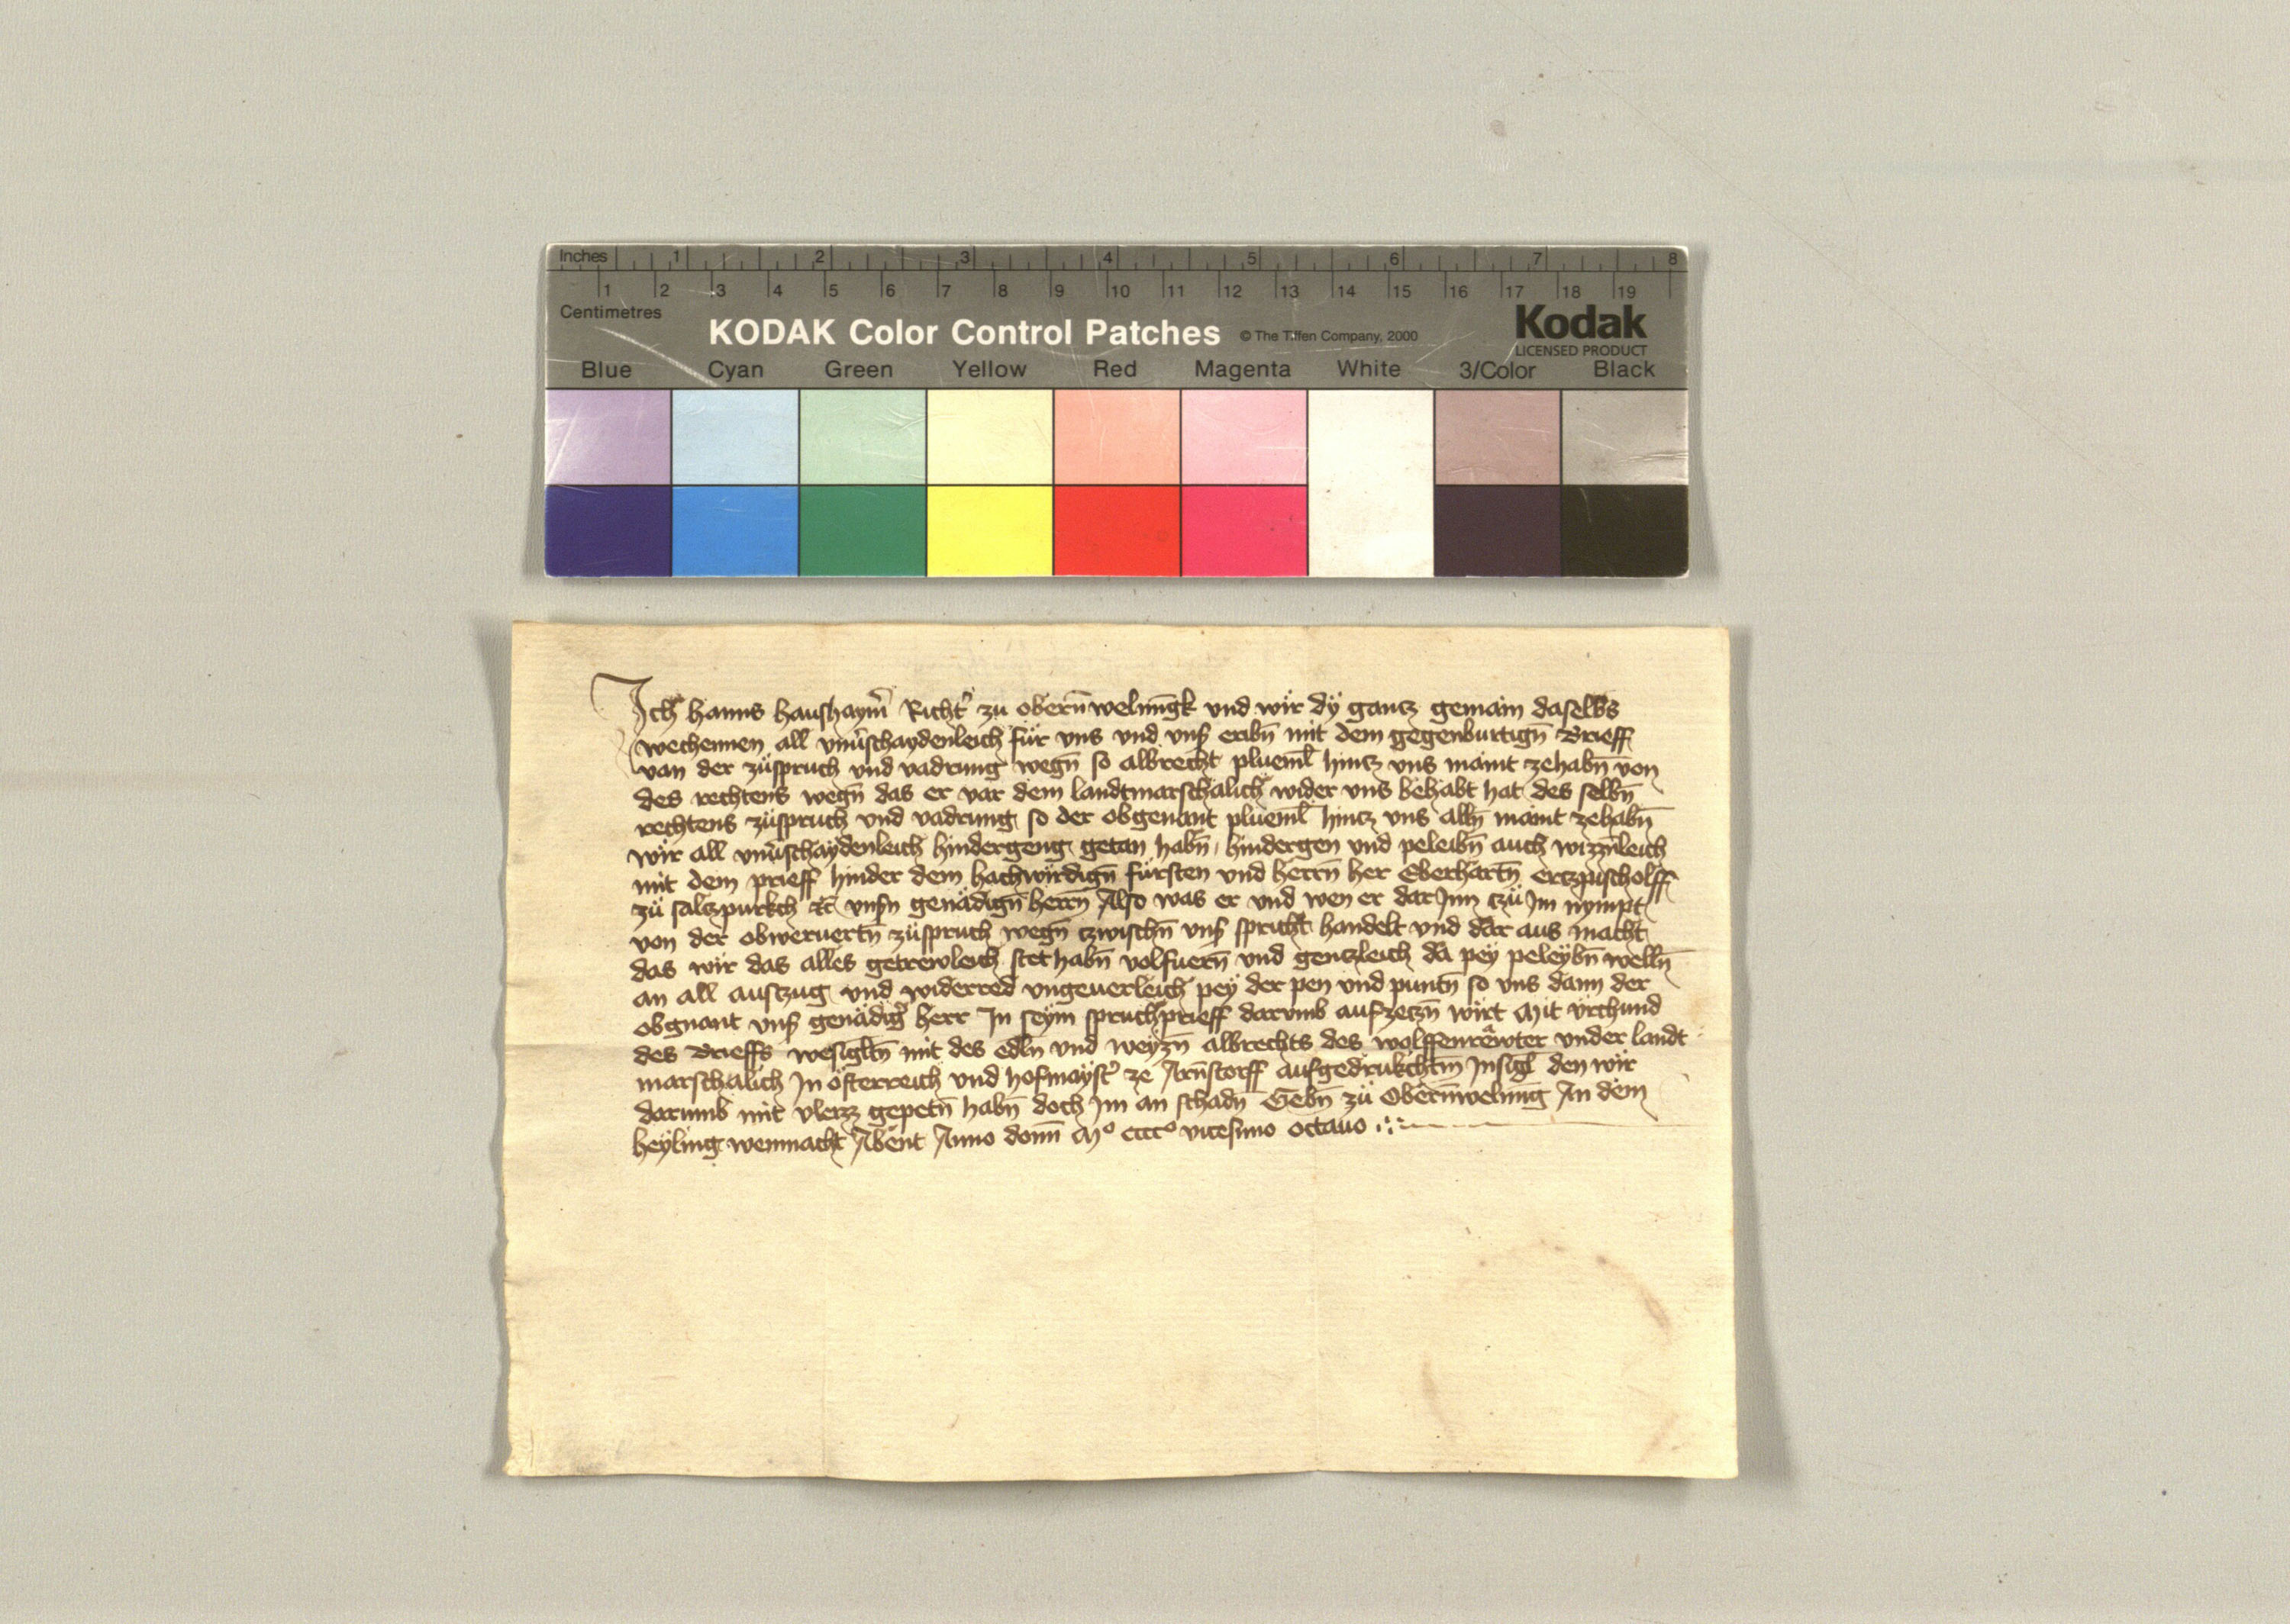 Inches 1 2 3 4 5 6 7 8
1 2 3 4 5 6 7 8 9 10 11 12 13 14 15 16 17 18 19
Centimetres
KODAK Color Control Patches © The Tiffen Company, 2000 Kodak
LICENSED PRODUCT
Blue Cyan Green Yellow Red Magenta White 3/Color Black
Ich hanns haushaym̄ Richt' zu obern̄welmīgk vnd wir dÿ gantz gemain daselbs
wechennen all vnu'schaydenleich für vns vnd vnſ eribn̄ mit dem gegenburtign̄ brieff
van der zuͤspruch vnd vadrung wegn̄ so albrecht plueml̄ hintz vns maint zehabn̄ von
des rechtens wegn̄ das er var dem landtmarschalich wider vns behabt hat des selbn̄
rechtens zuͤspruch vnd vadrung so der obgenant plueml̄ hintz vns alln̄ maint zehabn̄
wir all vnu'schaydenleich hindergeng getan habn̄ hindergen vnd peleibn̄ auch wizzn̄leich
mit dem prieff hinder dem hachwirdign̄ fürsten vnd herrn̄ her Eberhartn̄ ertzpischolff
zü saltzpurkch etc̄ vnſn genädign̄ herrn̄ Also was er vnd wen er dar Inn czü Im nympt
von der obweruertn̄ züspruch wegn̄ czwischn̄ vnſ spricht handelt vnd dar aus macht
das wir das alles getrewleich stet habn̄ volfuern̄ vnd gentzleich da pey peleybn̄ welln̄
an all austzug vnd widerred vngeuerleich pey der pen vnd puntn̄ so vns dann der
obgnant vnſ genädig' herr In seym spruchprieff darumb aufzeczn̄ wirt Mit vrchund
des brieffs wesigltn̄ mit des edln̄ vnd weyzn̄ albrechts des wolffenrewter vnder landt
marschalich In österreich vnd hofmayst' ze Arn̄storff aufgedrukchtm̄ Insigl̄ den wir
darumb mit vleizz gepetn̄ habn̄ doch Im an schadn̄ Gebn̄ zü Obern̄welmīg An dem
heyling weinnacht Abent Anno domī Mº ccccº vicesimo octauo